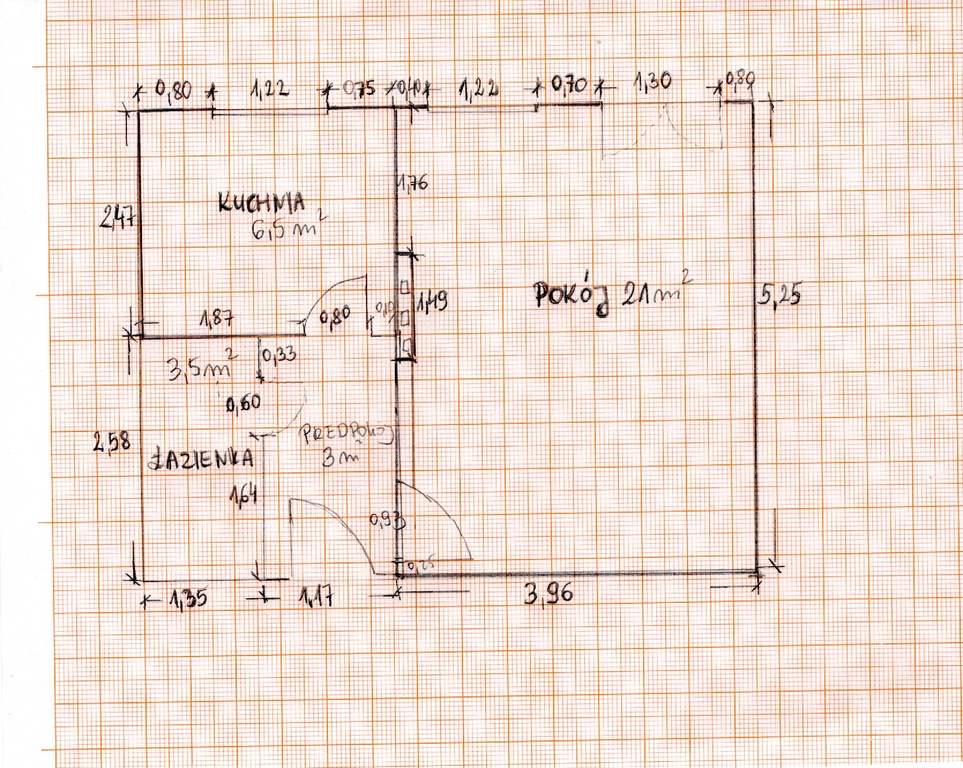 0,80 1,22 0,75 0,40 1,22 0,70 1,30 0,80
1,76
2,47
KUCHNIA
6,5 m²
POKÓJ 21m²
5,25
1,49
1,87
0,80
0,33
3,5m²
0,60
2,58
ŁAZIENKA
PRZEDPOKÓJ
3 m²
1,64
0,93
0,25
1,35
1,17
3,96